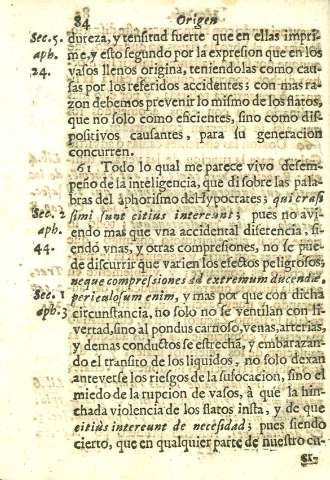 84 Origen
Sec. 5. dureza, y tensitud fuerte que en ellas impri-
aph. me, y esto segundo por la expresion que en los
24. vasos llenos origina, teniendolas como cau-
sas por los referidos accidentes; con mas ra-
zon debemos prevenir lo mismo de los flatos,
que no solo como eficientes, sino como dis-
positivos causantes, para su generacion
concurren.
61 Todo lo qual me parece vivo desem-
peño de la inteligencia, que di sobre las pala-
bras del aphorismo del Hypocrates; qui crasi
Sec. 2 simi sunt citius intereunt; pues no avi-
aph. endo mas que vna accidental diferencia, si-
44. endó vnas, y otras compresiones, no se pue-
de discurrir que varien los efectos peligrosos,
neque compressiones ad extremum ducendæ,
Sec. 1 periculosum enim, y mas por que con dicha
aph. 3 circunstancia, no solo no se ventilan con li-
vertad, sino al pondus carnoso, venas, arterias,
y demas conductos se estrecha, y embarazan-
do el transito de los liquidos, no solo dexan
anteverse los riesgos de la sufocacion, sino el
miedo de la rupcion de vasos, à que la hin-
chada violencia de los flatos insta, y de que
citiùs intereunt de necesidad; pues siendo
cierto, que en qualquier parte de nuestro cu-
er-